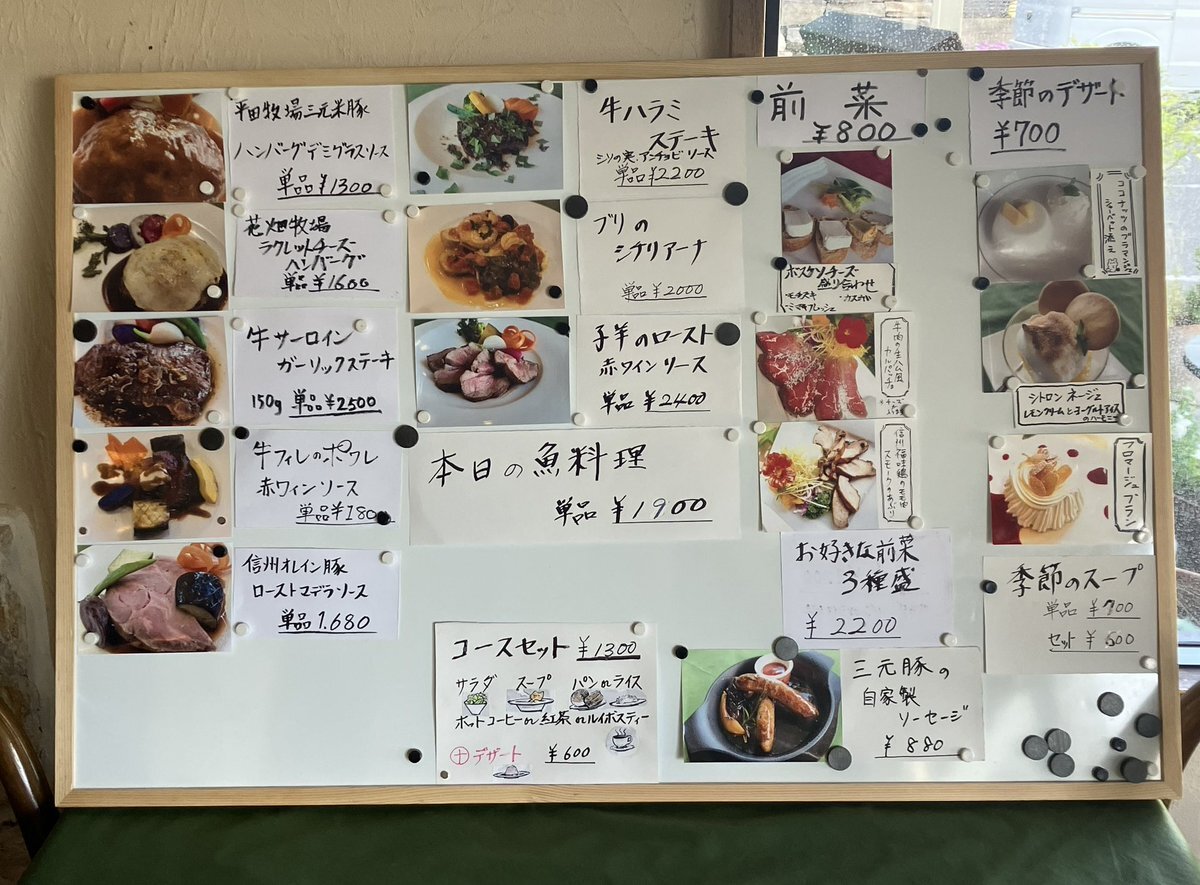 平田牧場三元米豚
ハンバーグデミグラスソース
単品¥1300
花畑牧場
ラクレットチーズ
ハンバーグ
単品¥1600
牛サーロイン
ガーリックステーキ
150g 単品¥2500
牛フィレのポワレ
赤ワインソース
単品¥180
信州オレイン豚
ローストマデラソース
単品1.680
牛ハラミ
ステーキ
シソの実、アンチョビソース
単品¥2200
ブリの
シチリアーナ
単品¥2000
子羊のロースト
赤ワインソース
単品¥2400
本日の魚料理
単品¥1900
コースセット ¥1300
サラダ スープ パンorライス
ホットコーヒーor紅茶orルイボスティー
⊕デザート ¥600
前菜
¥800
ボスケソチーズ
盛り合わせ
モチヅキ
牛肉の生ハム風
カルパッチョ
信州福味鶏のモモ肉
スモークのあぶり
お好きな前菜
3種盛
¥2200
三元豚の
自家製
ソーセージ
¥880
季節のデザート
¥700
ココナッツのブラマンジェ
シャーベット添え
シトロンネージュ
レモンクリームとヨーグルトアイス
のハーモニー
フロマージュブラン
季節のスープ
単品 ¥700
セット ¥600